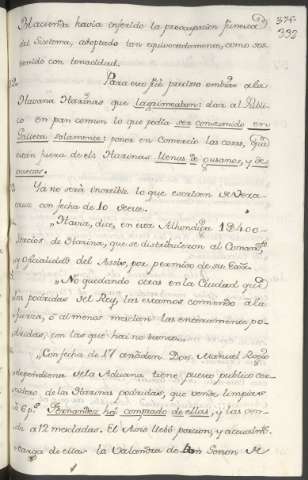 375
332
Hacienda havia inferido la preocupacion funesta
del Sistema, adoptado tan equivocadamente, como sos-
tenido con tenacidad.
12. Para eso fué preciso embiar a la
Havana Harinas que la apestasen: dar al Publi-
co en pan comun lo que podia ser consumido en
Galleta solamente: poner en Comercio las coras, que
eran fuera de els Harinas llenas de gusanos, y de
Ya no será increible lo que escriven de Vera-
cruz con fecha de 10 de
"Havia, dice, en esta Alhondiga 1D400
tercios de Harina, que se distribuieron al Comercio
y Oficialidad del Assto, por permiso de su
"No quedando otras en la Ciudad que
las podridas del Rey, las estamos comiendo a la
fuerza, ó al menos mezclan los enteramente po-
dridas, con las que no tienen.
"Con fecha de 17 añaden. Don Manuel
dependiente de la Aduana tiene puesto publico con
de la Harina podridas, que vende limpias
a 6 ps. Fernandez ha comprado de ellas, y las ven-
de a 12 mezcladas. El llebó porcion, y actualmte.
carga de ellas la Valandra de Don